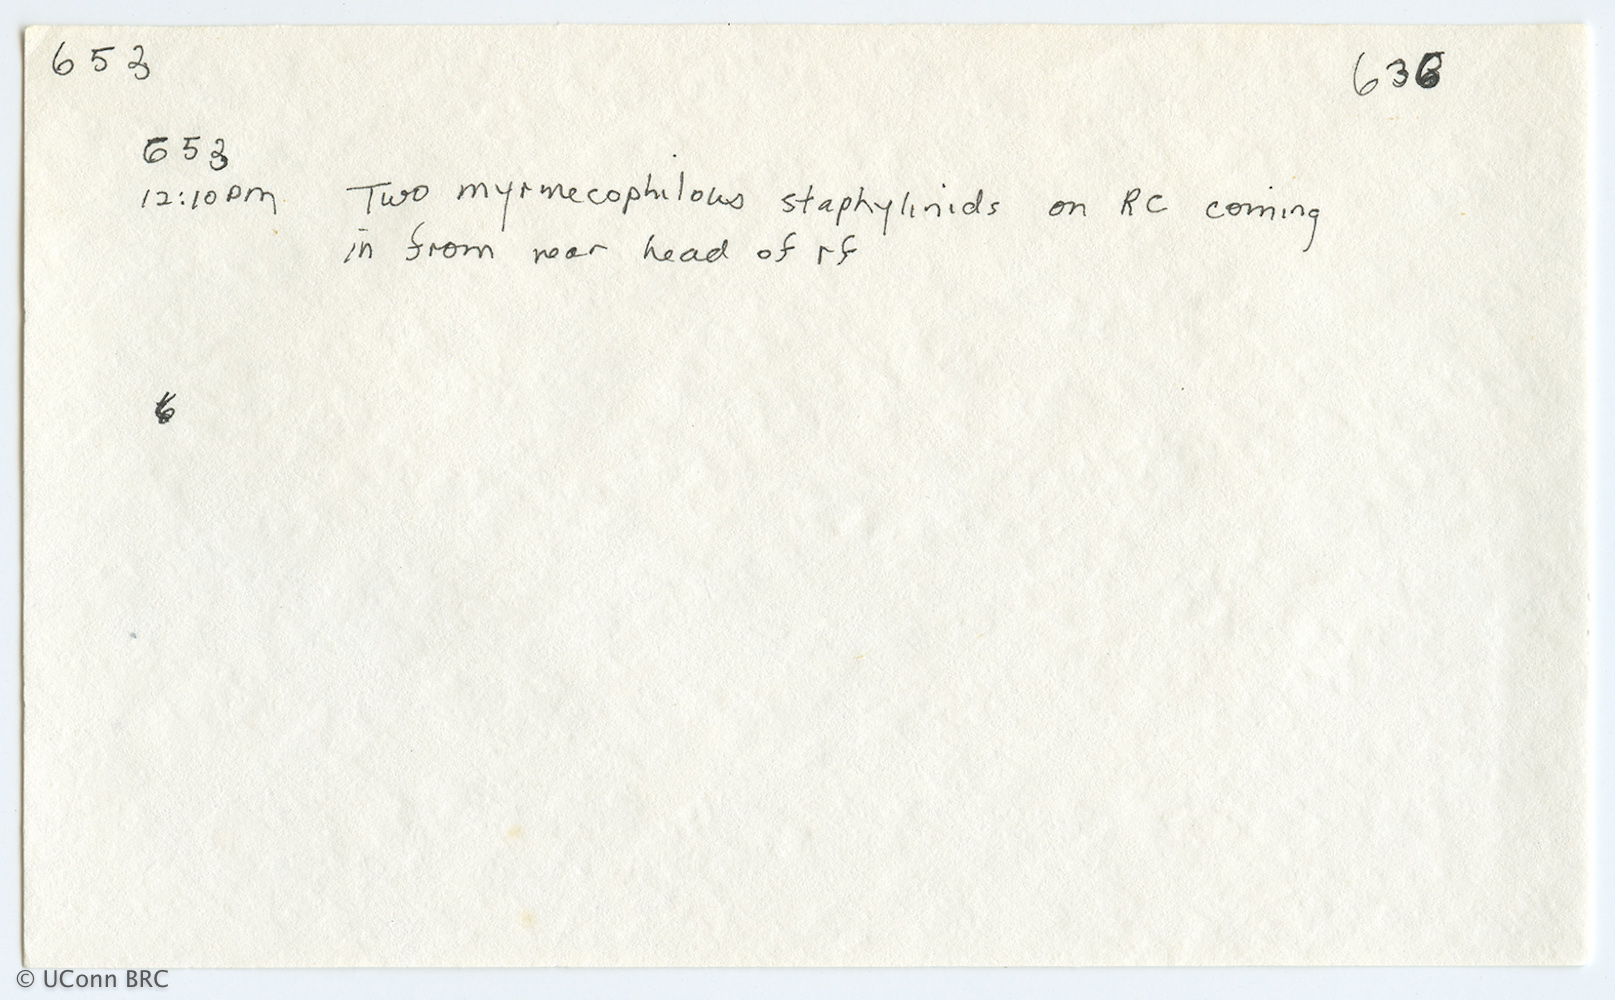 653 636
653
12:10pm Two myrmecophilous staphylinids on RC coming
in from near head of rf
6
© UConn BRC